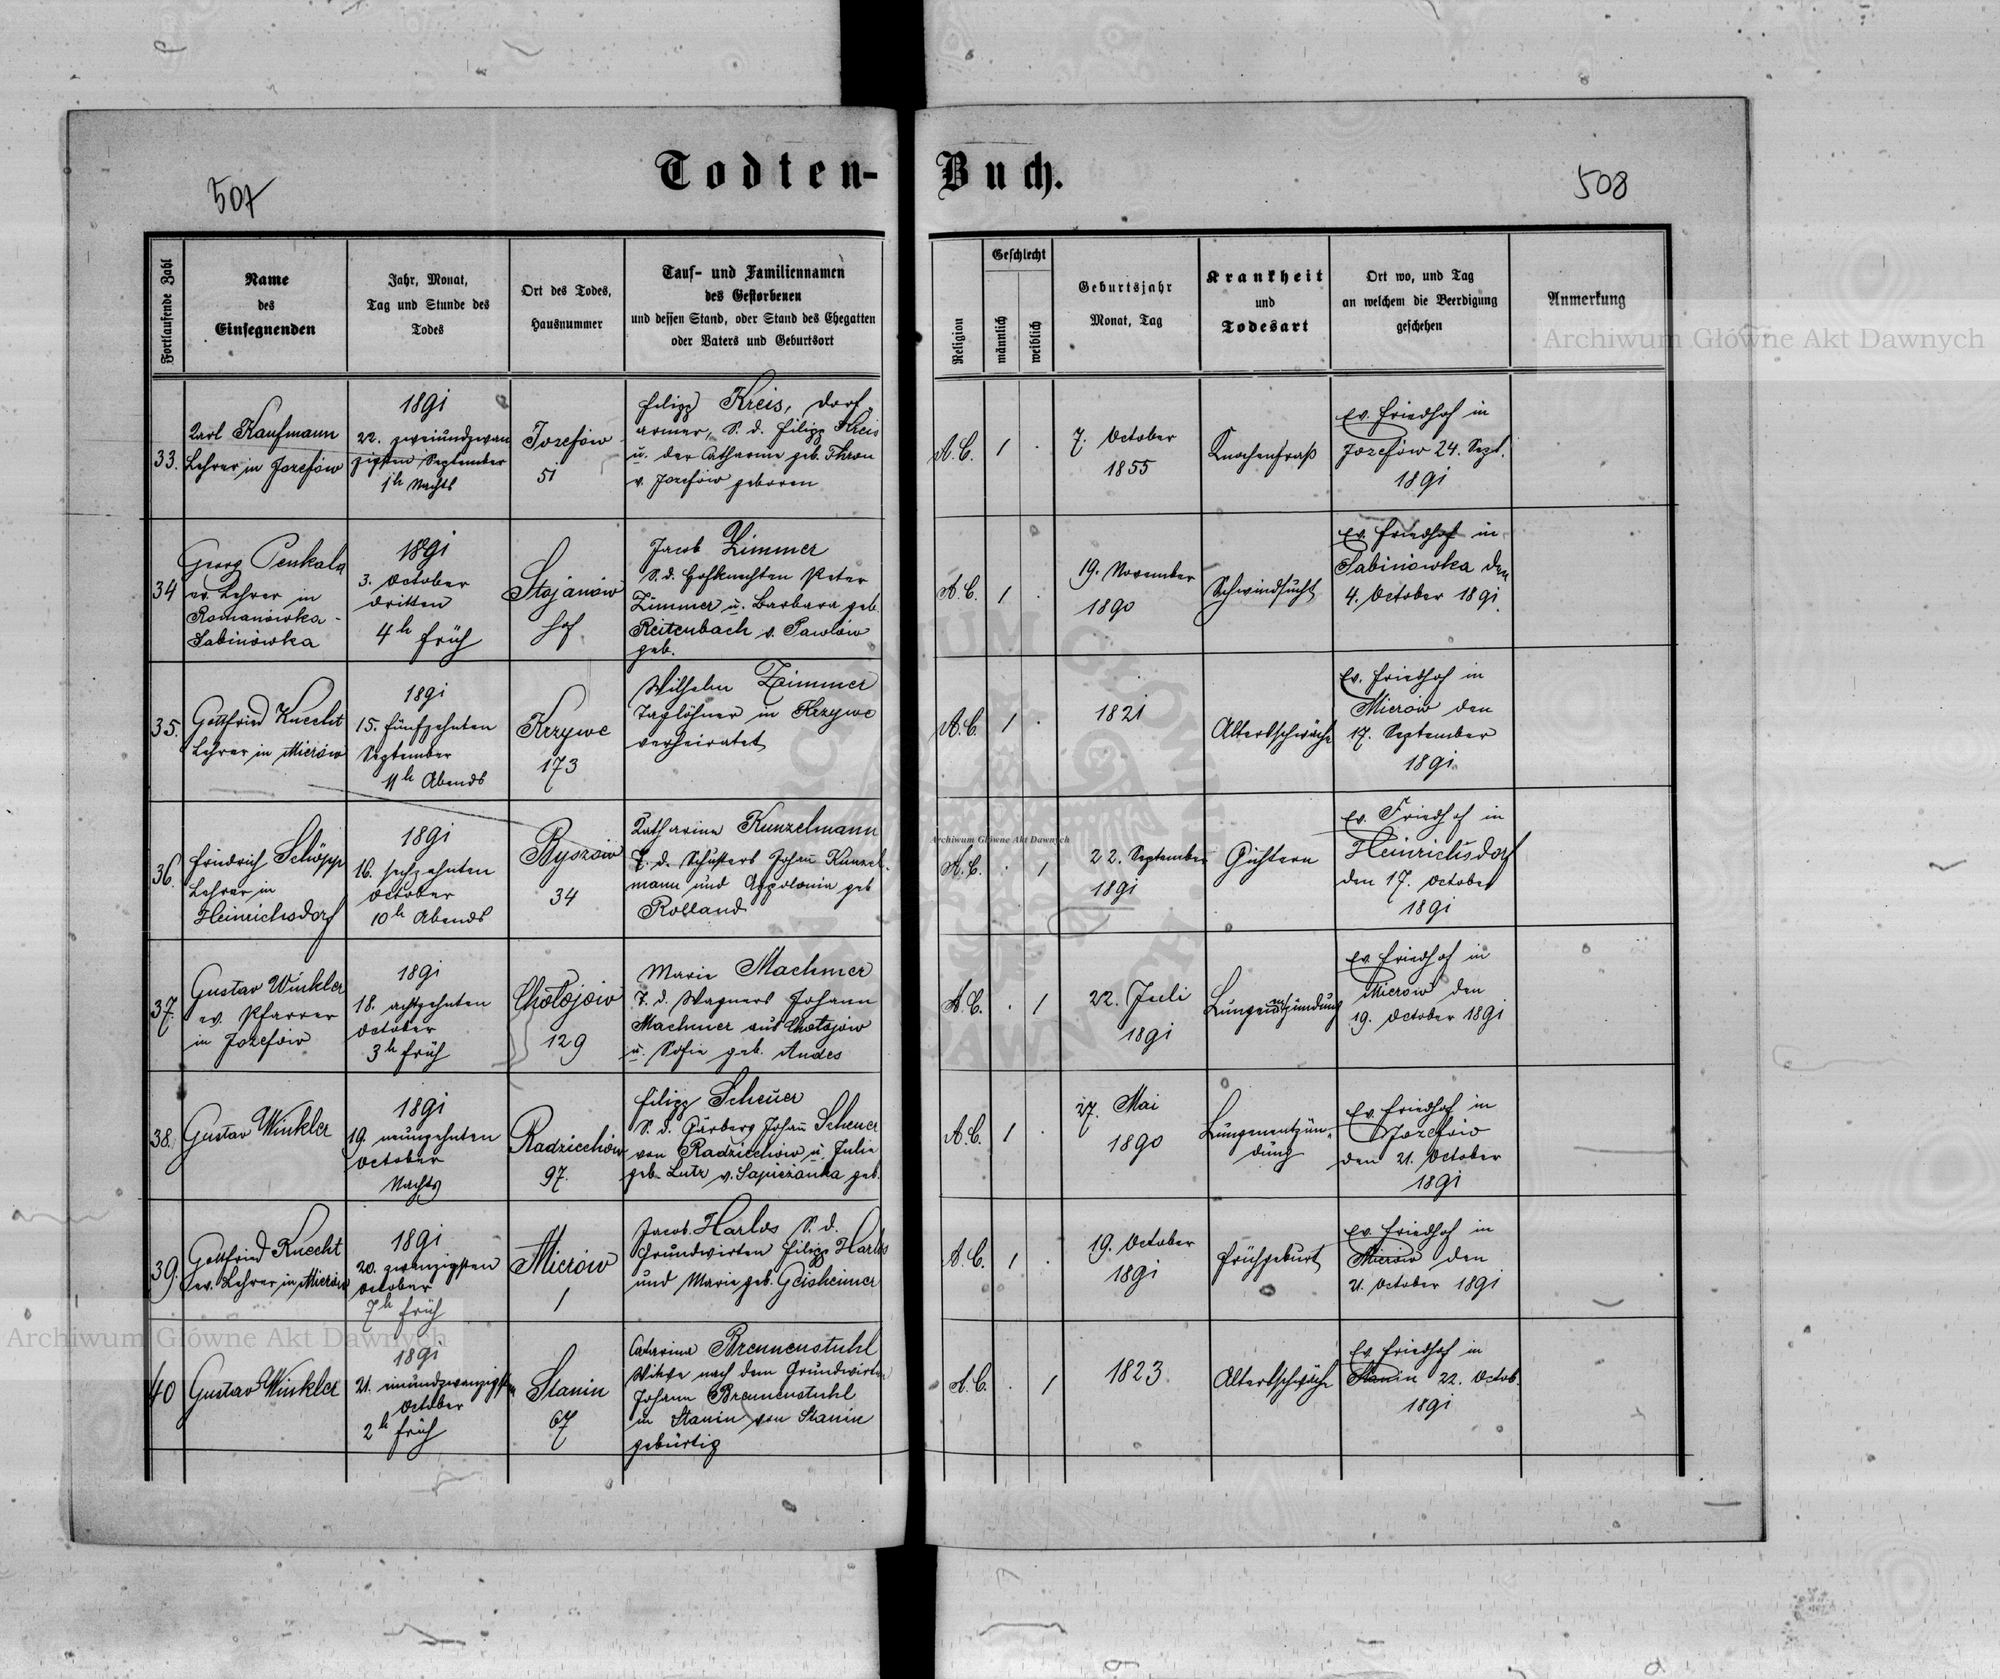 Todten-Buch.
507
508
Fortlaufende Zahl
Name
des
Einsegnenden
Jahr, Monat,
Tag und Stunde des
Todes
Ort des Todes,
Hausnummer
Tauf- und Familiennamen
des Gestorbenen
und dessen Stand, oder Stand des Ehegatten
oder Vaters und Geburtsort
Religion
Geschlecht
männlich
weiblich
Geburtsjahr
Monat, Tag
Krankheit
und
Todesart
Ort wo, und Tag
an welchem die Beerdigung
geschehen
Anmerkung
33.
Karl Kaufmann
Lehrer in Jozefów
1891
22. zweiundzwan
zigsten September
1h Nachts
Jozefów
51
Filipp Kreis, Dorf-
armer, S. d. Filipp Kreis
u. der Catharine geb. Thron
v. Jozefów geboren
A.C.
1
.
7. October
1855
Knochenfraß
Ev. Friedhof in
Jozefów 24. Sept.
1891
34
Georg Penkala
ev. Lehrer in
Romanówka-
Sabinówka
1891
3. October
dritten
4h früh
Stojanów
Hof
Jacob Zimmer
S. d. Hofknechten Peter
Zimmer u. Barbara geb.
Reitenbach v. Pawlów
geb.
A.C.
1
.
19. November
1890
Schwindsucht
Ev. Friedhof in
Sabinówka den
4. October 1891
35.
Gottfried Knecht
Lehrer in Mierów
1891
15. fünfzehnten
September
11h Abends
Krzywe
173
Wilhelm Zimmer
Taglöhner in Krzywe
verheiratet
A.C.
1
.
1821
Altersschwäche
Ev. Friedhof in
Mierów den
17. September
1891
36.
Friedrich Schöpp
Lehrer in
Heinrichsdorf
1891
16. sechzehnten
October
10h Abends
Byszów
34
Katharina Kunzelmann
T. d. Schusters Johañ Kunzel-
mann und Appolonia geb
Rolland
A.C.
.
1
22. September
1891
Gichtern
Ev. Friedhof in
Heinrichsdorf
den 17. October
1891
37.
Gustav Winkler
ev. Pfarrer
in Jozefów
1891
18. achtzehnten
October
3h früh
Chołojów
129
Marie Machmer
T. d. Wagners Johann
Machmer aus Chołojów
u. Sofie geb. Andes
A.C.
.
1
22. Juli
1891
Lungenentzündung
Ev. Friedhof in
Mierów den
19. October 1891
38.
Gustav Winkler
1891
19. neunzehnten
October
Nachts
Radziechów
97.
Filipp Scheuer
S. d. Färbers Johañ Scheuer
von Radziechów u. Julie
geb. Lutz v. Sapieżanka geb.
A.C.
1
.
27. Mai
1890
Lungenentzün-
dung
Ev. Friedhof in
Jozefów
den 21. October
1891
39.
Gottfried Knecht
ev. Lehrer in Mierów
1891
20. zwanzigsten
October
7h früh
Mierów
1
Jacob Harlos S. d.
Grundwirten Filipp Harlos
und Marie geb. Geisheimer
A.C.
1
.
19. October
1891
Frühgeburt
Ev. Friedhof in
Mierów den
21. October 1891
40
Gustav Winkler
1891
21. einundzwanzigsten
October
2h früh
Stanin
67
Catarina Brennenstuhl
Witwe nach dem Grundwirten
Johann Brennenstuhl
in Stanin von Stanin
gebürtig
A.C.
.
1
1823
Altersschwäche
Ev. Friedhof in
Stanin 22. Octob.
1891
Archiwum Główne Akt Dawnych
Archiwum Główne Akt Dawnych
Archiwum Główne Akt Dawnych